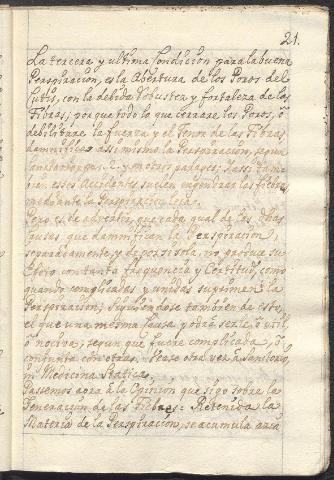 21.
La tercera y ultima Condicion para la buena
Perspiracion, es la Abertura de los Poros del
Cutis, con la debida Robustez y fortaleza de las
Fibras; porque todo lo que cerrare los Poros, ò
debilitare la fuerza y el Tenor de las Fibras,
damnifica assi mismo la Perspiracion, segun
y en otros parages; y assi tam-
bien esos Accidentes suelen engendrar las fiebres
mediante la Perspiracion lesa.
Pero es de advertir, que cada qual de las dhas
Causas que damnifican la Perspiracion,
separadamente, y de por si sola, no produce su
Efecto con tanta frequencia y Certitud, como
quando complicadas y unidas suprimen la
Perspiracion; siguiendose tambien de esto,
el que una misma Causa podrà serle, ò util,
ò nociva, segun que fuere complicada, ò
conjunta con otras. Vease otra vez à Sanctorio,
in Medicina Statica.
Passemos aora à la Opinion que sigo sobre la
Generacion de las Fiebres: Retenida la
Materia de la Perspiracion, se acumula àzia